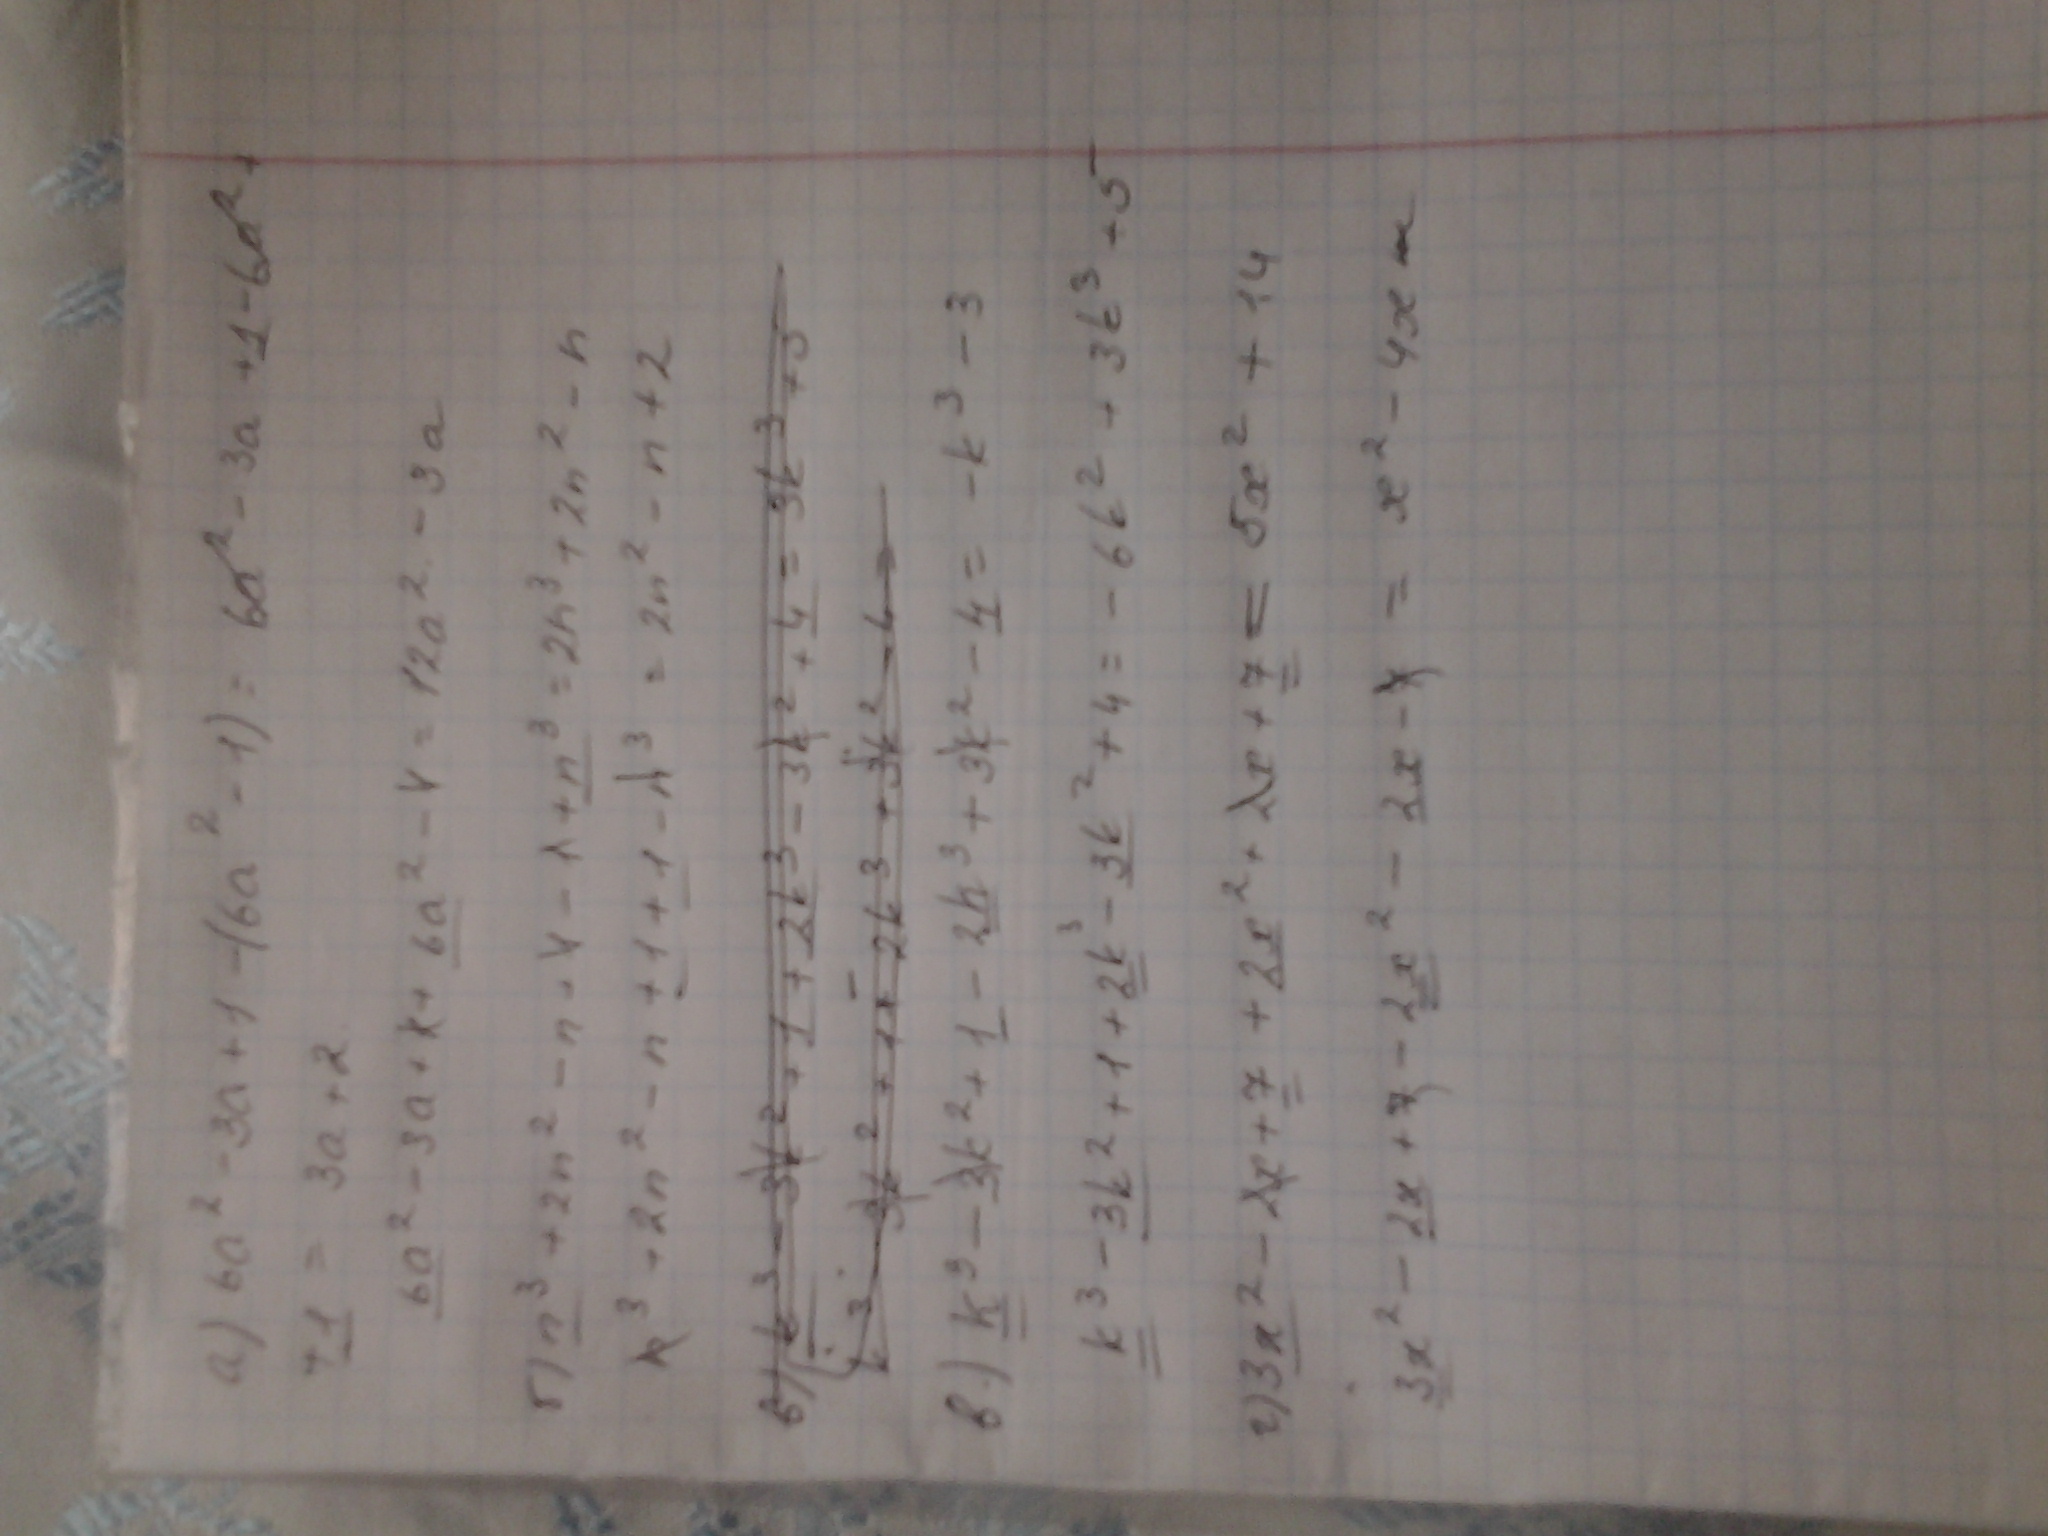 а) 6a² - 3a + 1 - (6a² - 1) = 6a² - 3a + 1 - 6a² +
+ 1 = 3a + 2
6a² - 3a + 1 + 6a² - 1 = 12a² - 3a
б) n³ + 2n² - n + 1 - 1 + n³ = 2n³ + 2n² - n
n³ + 2n² - n + 1 + 1 - n³ = 2n² - n + 2
в) k³ - 3k² + 1 + 2k³ - 3k² + 4 = 3k³ + 5
k³ - 3k² + 1 - 2k³ + 3k² - 4 =
в.) k³ - 3k² + 1 - 2k³ + 3k² - 4 = -k³ - 3
k³ - 3k² + 1 + 2k³ - 3k² + 4 = - 6k² + 3k³ + 5
г) 3x² - 2x + 7 + 2x² + 2x + 7 = 5x² + 14
3x² - 2x + 7 - 2x² - 2x - 7 = x² - 4x